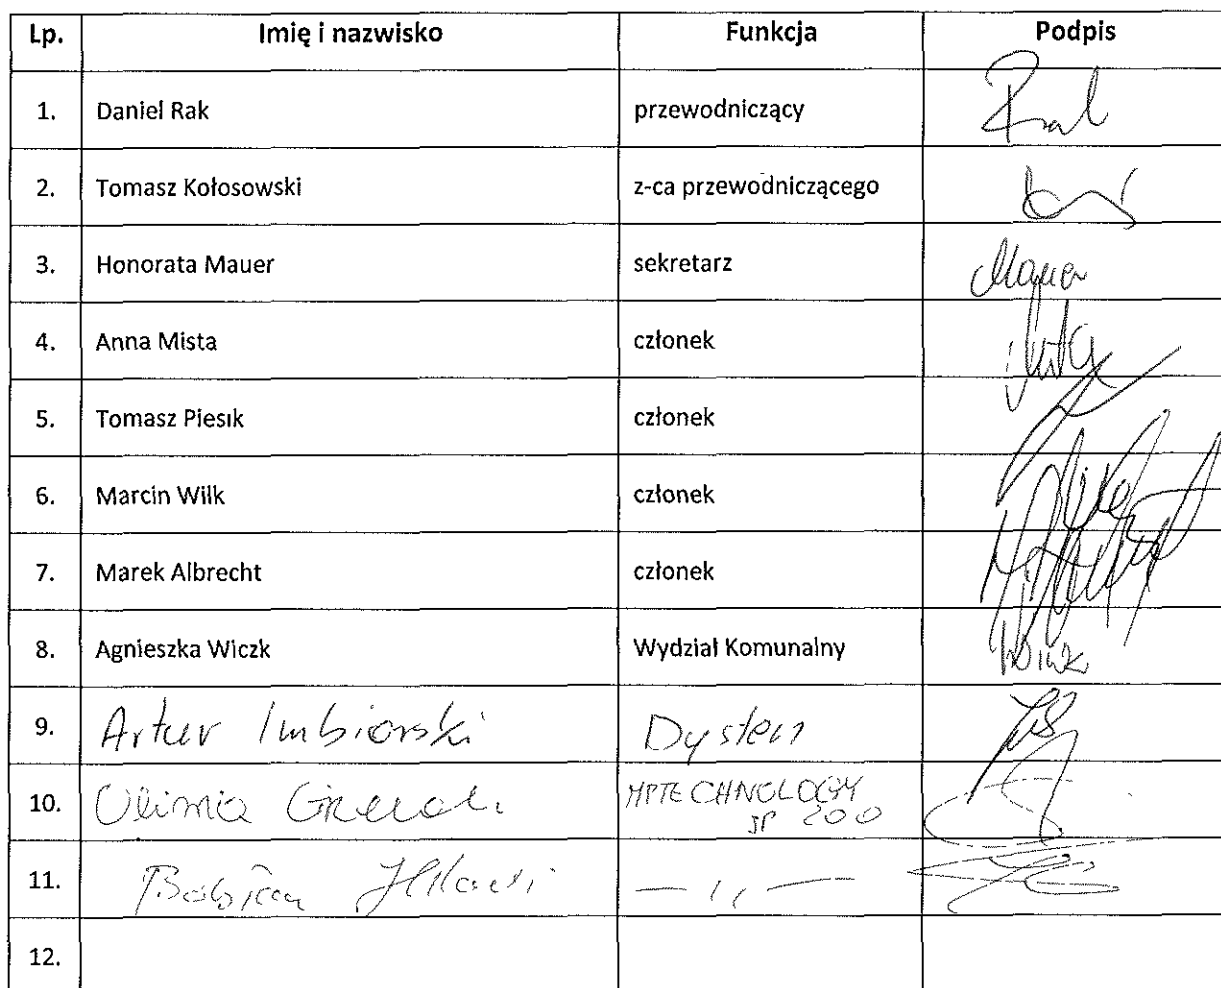 Lp. Imię i nazwisko Funkcja Podpis
1. Daniel Rak przewodniczący Rak
2. Tomasz Kołosowski z-ca przewodniczącego
3. Honorata Mauer sekretarz Mauer
4. Anna Mista członek
5. Tomasz Piesik członek
6. Marcin Wilk członek
7. Marek Albrecht członek
8. Agnieszka Wiczk Wydział Komunalny
9. Artur Imbiorski Dysten
10. MPTECHNOLOGY
11. — 〃 —
12.